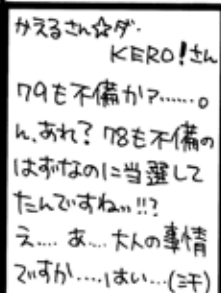 かえるさん☆ダ・
KERO!さん
79も不備か?……。
ん、あれ? 78も不備の
はずなのに当選して
たんですねぃ!!?
え…. あ…. 大人の事情
ですか….はい…(三汗)